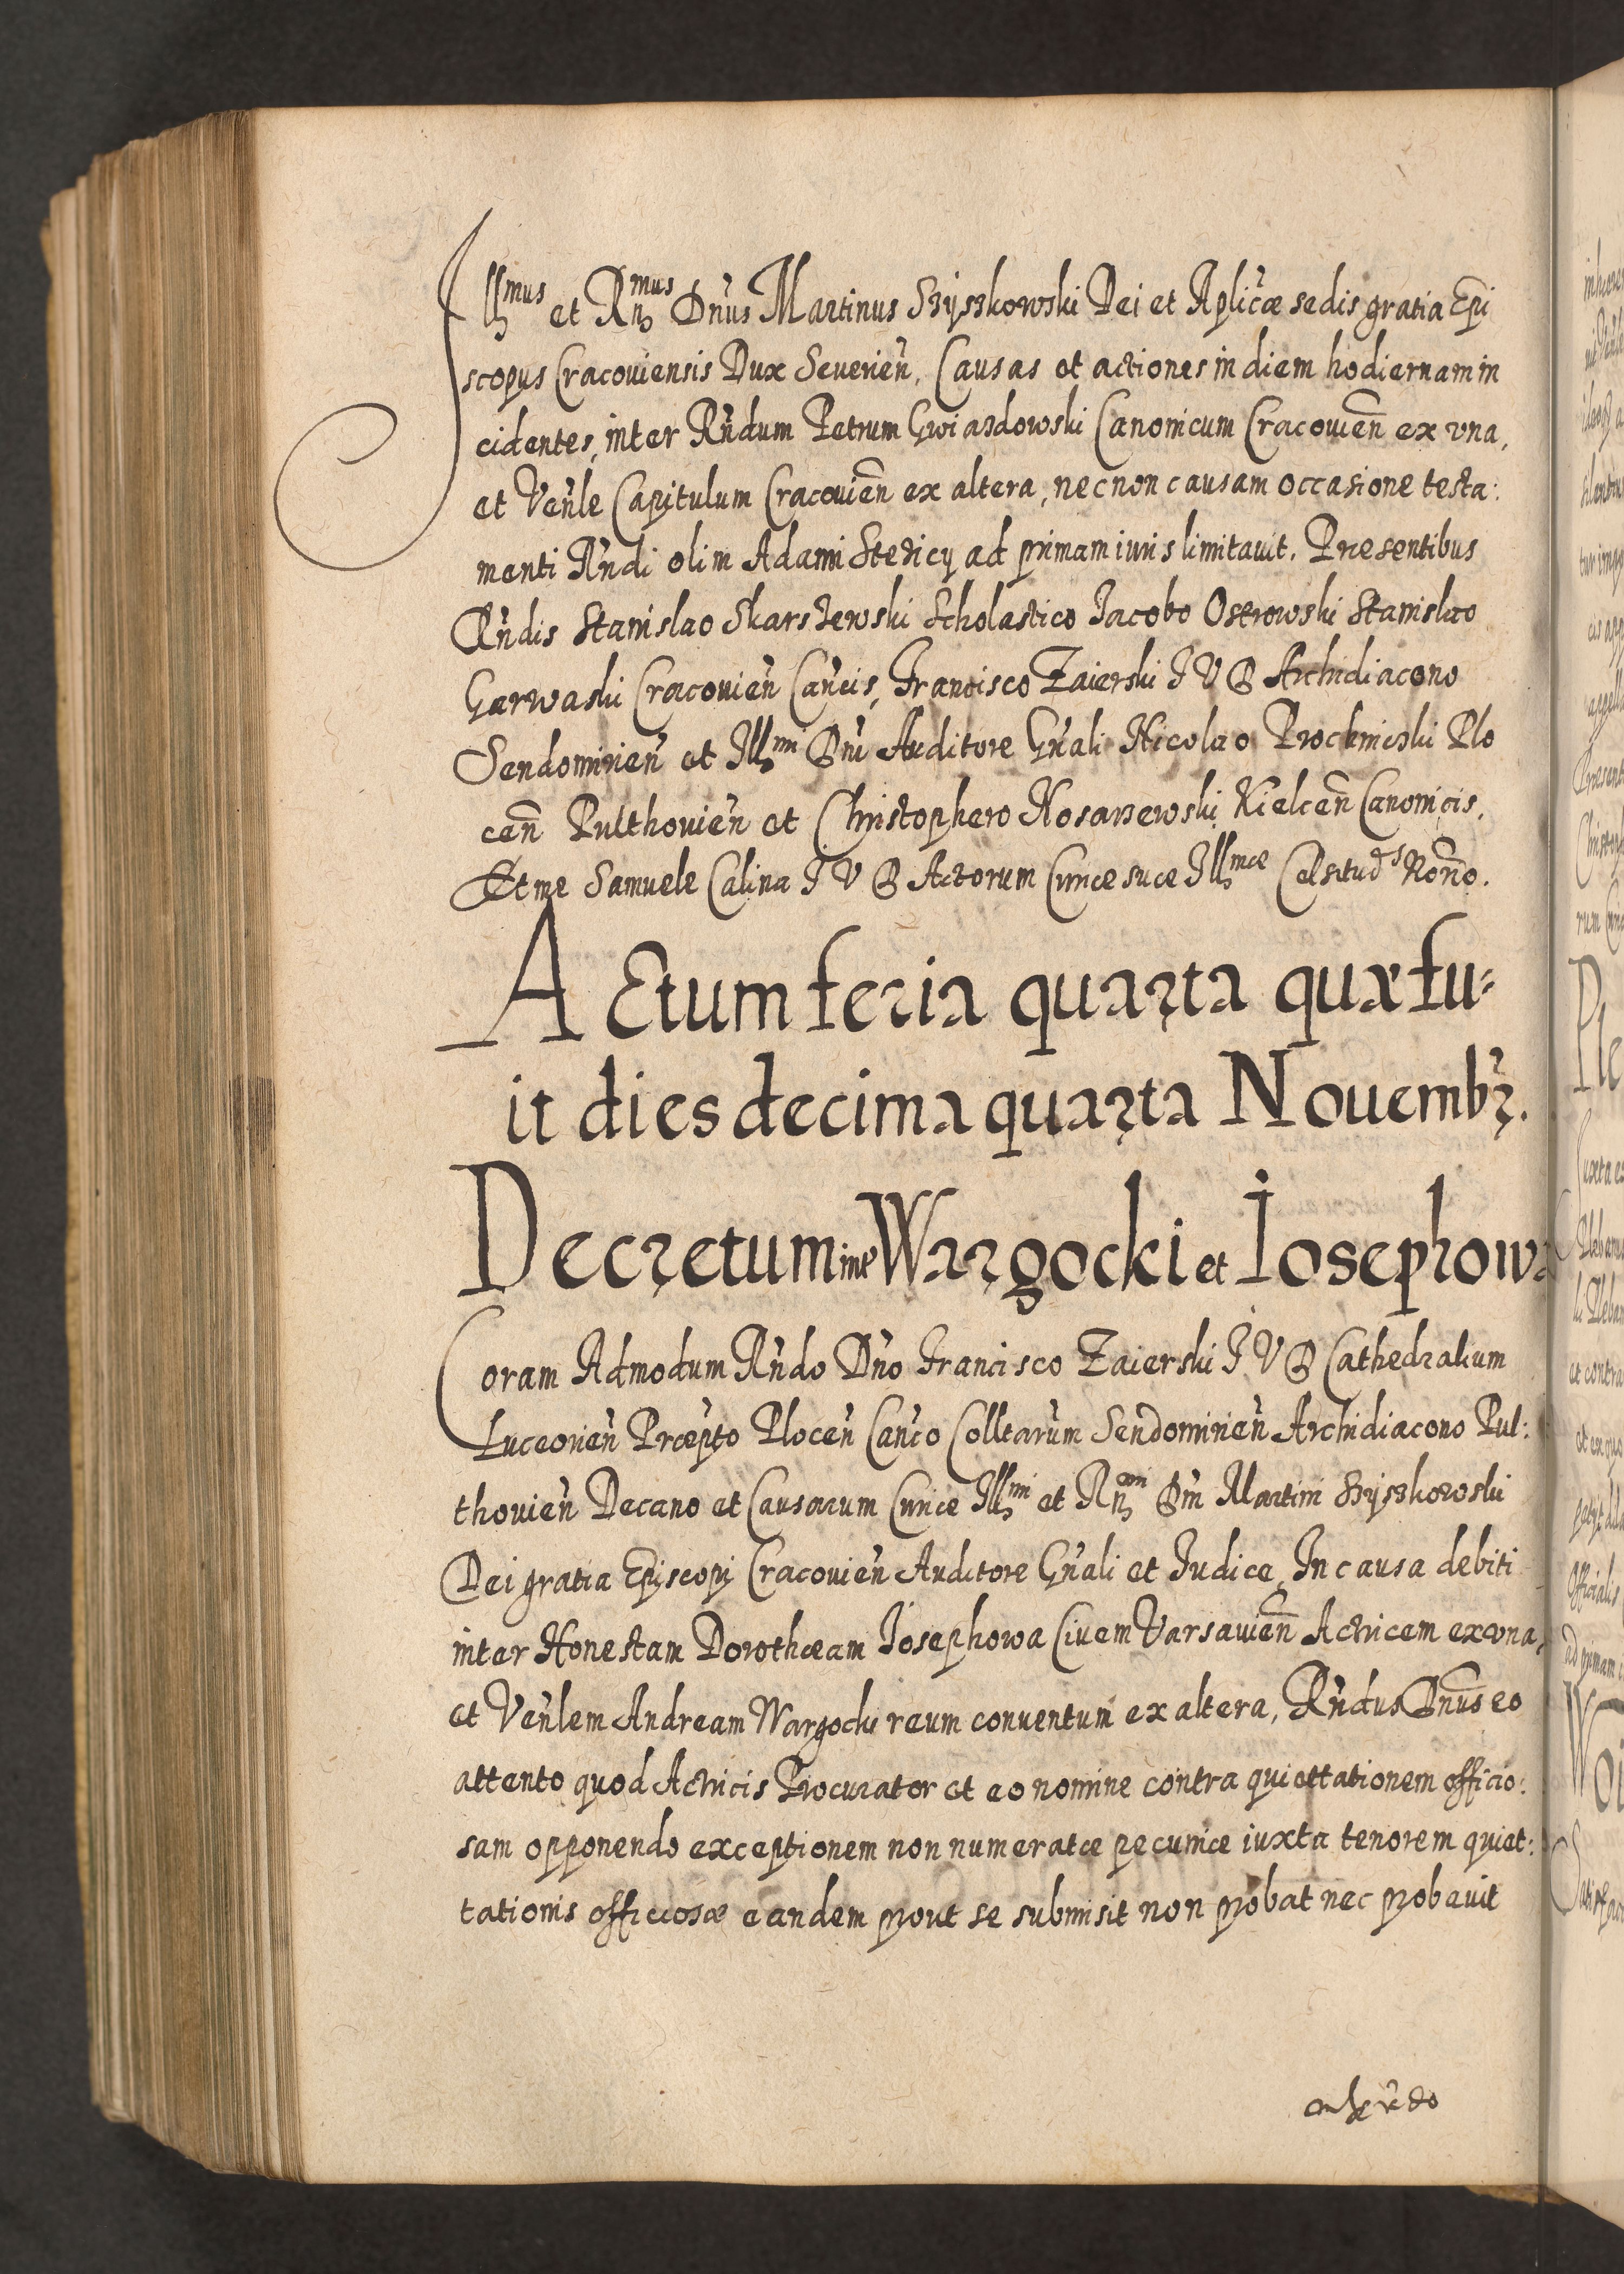 Illmus et Rnmus Dn̄us Martinus Szyszkowski Dei et Aplicæ sedis gratia Epi
scopus Cracouiensis Dux Seuerien̄. Causas et actiones in diem hodiernam in
cidentes, inter Rn̄dum Petrum Gwiazdowski Canonicum Cracouien̄ ex vna,
et Ven̄le Capitulum Cracouien̄ ex altera, necnon causam occasione testa:
menti Rn̄di olim Adami Stedicy ad primam iuris limitauit. Præsentibus
Rn̄dis Stanislao Skarszewski Scholastico Jacobo Ostrowski Stanislao
Garwaski Cracouien̄ Can̄cis, Francisco Zaierski J V D Archidiacono
Sendomirien̄ et Illmi Dn̄i Auditore Gn̄ali Nicolao Prochnicki Plo
cen̄ Pulthouien̄ et Christophero Kosarzewski Kielcen̄ Canonicis,
Et me Samuele Calina J V D Actorum Curiæ suæ Illmæ Celsituds Norio.
ACtum feria quarta quæ fu=
it dies decima quarta Nouembr̄.
Decretum inter Wargocki et Iosephowa
Coram Admodum Rn̄do Dn̄o Francisco Zaierski J V D Cathedralium
Luceorien̄ Præpto Plocen̄ Can̄co Colltarum Sendomirien̄ Archidiacono Pul:
thouien̄ Decano et Causarum Curiæ Illmi et Rnmi Dn̄i Martini Szyszkowski
Dei gratia Episcopi Cracouien̄ Auditore Gn̄ali et Iudice, In causa debiti
inter Honestam Dorotheam Iosephowa Ciuem Varsauien̄ Actricem ex vna,
et Ven̄lem Andream Wargocki reum conuentum ex altera, Rn̄dus Dn̄us eo
attento quod Actricis Procurator et eo nomine contra quiettationem officio:
sam opponendo exceptionem non numeratæ pecuniæ iuxta tenorem quiet:
tationis officiosæ eandem prout se submisit non probat nec probauit